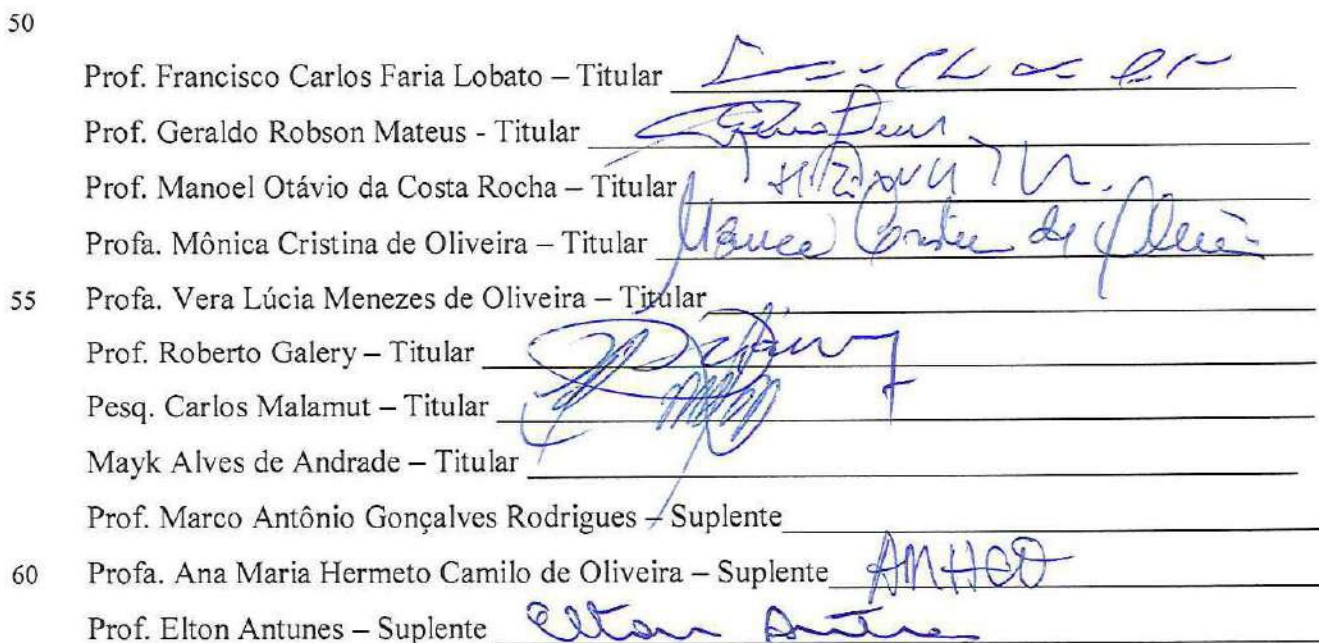 50
Prof. Francisco Carlos Faria Lobato – Titular
Prof. Geraldo Robson Mateus - Titular
Prof. Manoel Otávio da Costa Rocha – Titular
Profa. Mônica Cristina de Oliveira – Titular
55 Profa. Vera Lúcia Menezes de Oliveira – Titular
Prof. Roberto Galery – Titular
Pesq. Carlos Malamut – Titular
Mayk Alves de Andrade – Titular
Prof. Marco Antônio Gonçalves Rodrigues – Suplente
60 Profa. Ana Maria Hermeto Camilo de Oliveira – Suplente AMHCO
Prof. Elton Antunes – Suplente Elton Antunes